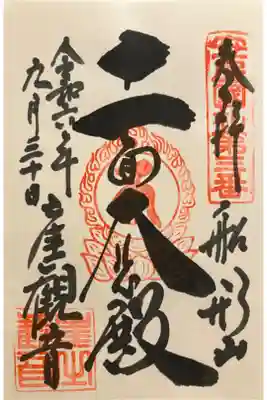 奉拝
船形山
十一面大悲殿
令和六年
九月三十日
崖觀音